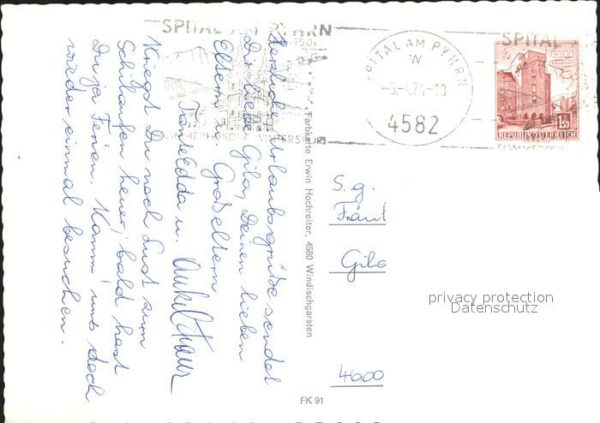 SPITAL AM PYHRN
SPITAL AM PYHRN
W
-5.-4.74-10
4582
SPITAL
1.50
REPUBLIK ÖSTERREICH
Herzliche Urlaubsgrüße sendet
Dir, liebe Gila, Deinen lieben
Eltern u. Großeltern
Tante Edda u. Onkel Hans
Kriegst Du noch Lust zum
Schilaufen heuer, bald hast
Du ja Ferien. Komm' uns doch
wieder einmal besuchen.
Farbkarte Erwin Hochreiter, 4580 Windischgarsten
S. g.
Fräul
Gila
4600
privacy protection
Datenschutz
FK 91